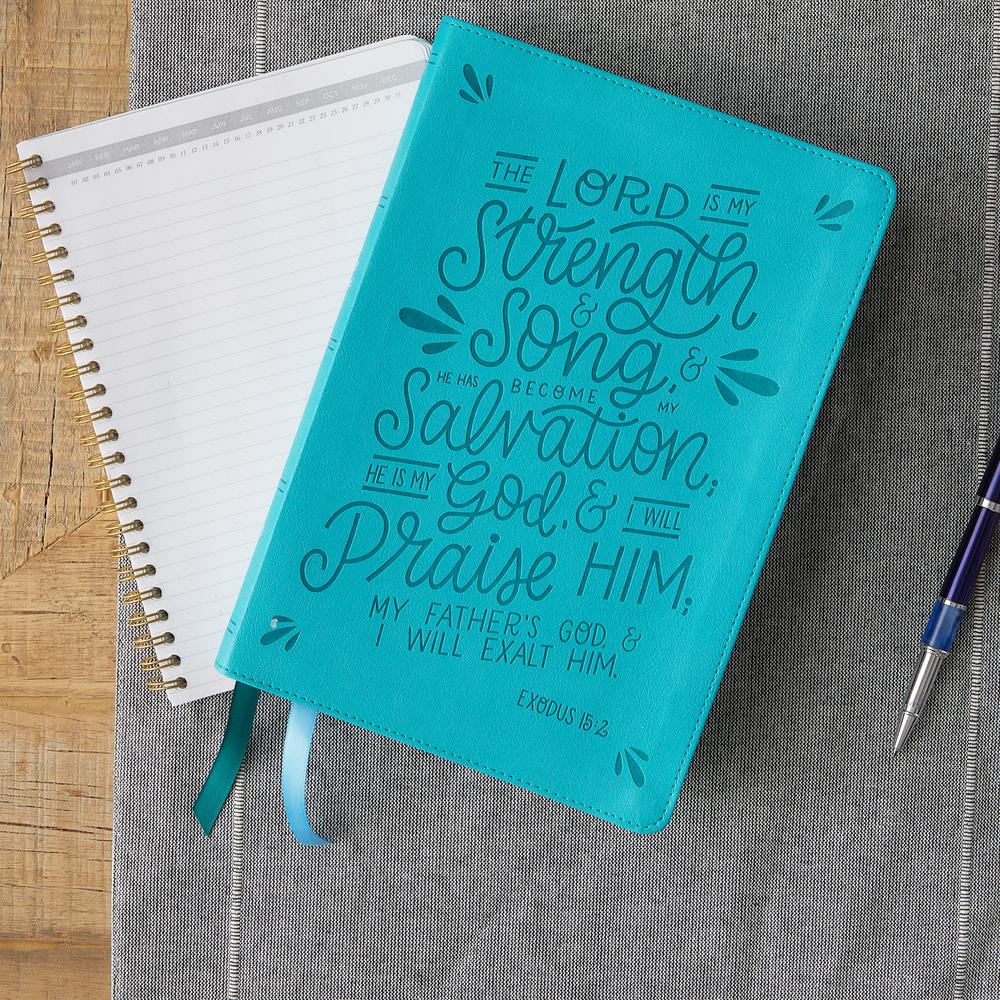 JAN FEB MAR APR MAY JUN JUL AUG SEP OCT NOV DEC
01 02 03 04 05 06 07 08 09 10 11 12 13 14 15 16 17 18 19 20 21 22 23 24 25 26 27 28 29 30 31
THE LORD IS MY
Strength
& Song, &
HE HAS BECOME MY
Salvation;
HE IS MY God, & I WILL
Praise HIM;
MY FATHER'S GOD, &
I WILL EXALT HIM.
EXODUS 15:2